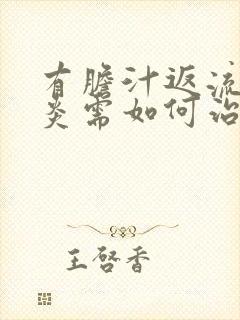 有膽汁返流
炎需如何治
王啓香